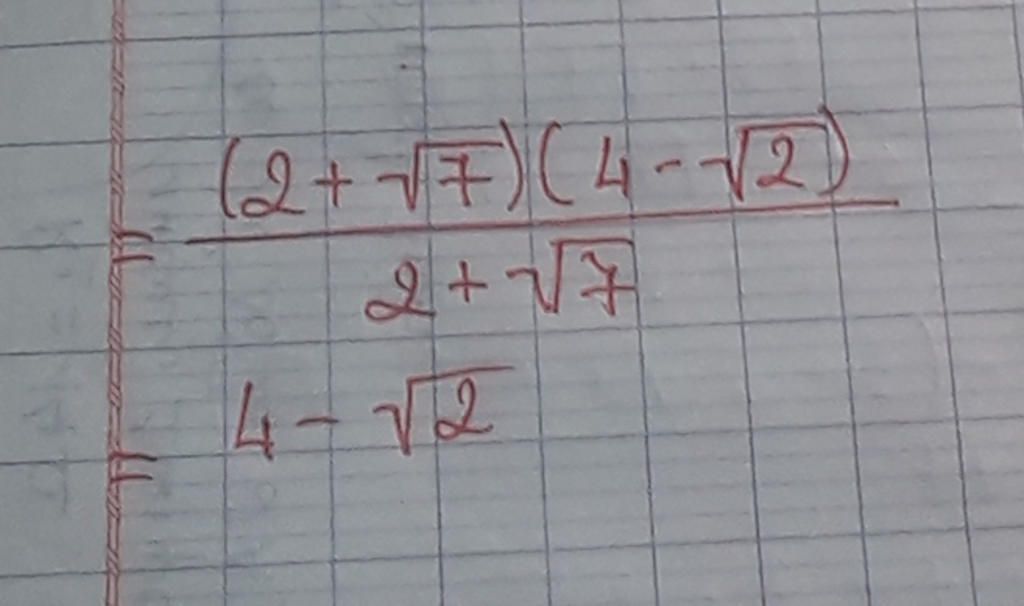 = (2 + √7)(4 - √2)
2 + √7
= 4 - √2